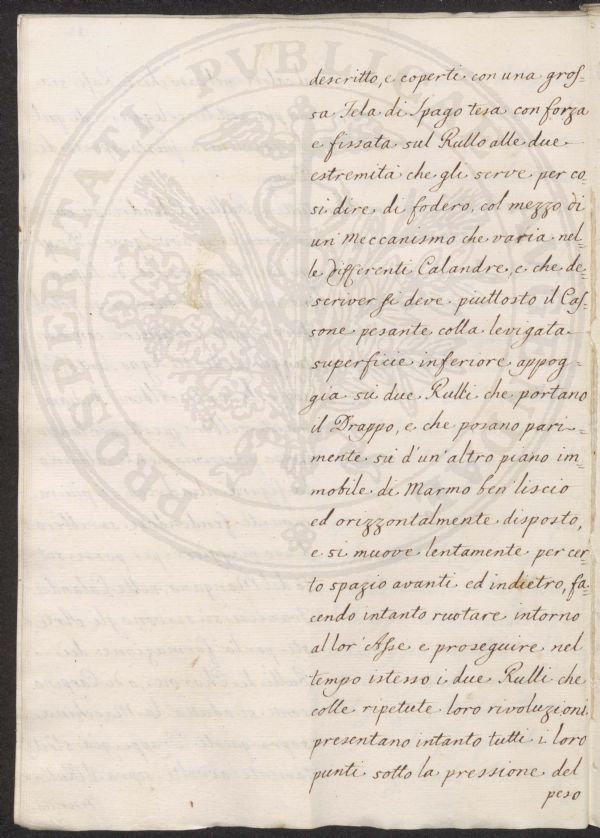 descritto, e coperti con una gros=
sa Tela di Spago tesa con forza
e fissata sul Rullo alle due
estremità che gli serve per co=
sì dire di fodero, col mezzo di
un Meccanismo che varia nel=
le differenti Calandre, e che de=
scriver si deve piuttosto il Cas=
sone pesante colla levigata
superficie inferiore appog=
gia sù due Rulli che portano
il Drappo, e che posano pari=
mente sù d'un'altro piano im=
mobile di Marmo ben'liscio
ed orizzontalmente disposto,
e si muove lentamente per cer=
to spazio avanti ed indietro, fa=
cendo intanto ruotare intorno
al lor'Asse e proseguire nel
tempo istesso i due Rulli che
colle ripetute loro rivoluzioni
presentano intanto tutti i loro
punti sotto la pressione del
peso
PROSPERITATI PVBLICAE